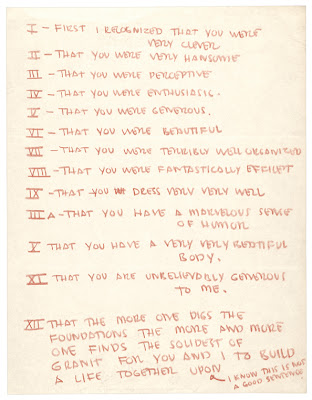 I - FIRST I RECOGNIZED THAT YOU WERE
VERY CLEVER
II - THAT YOU WERE VERY HANSOME
III - THAT YOU WERE PERCEPTIVE
IV - THAT YOU WERE ENTHUSIASIC.
V - THAT YOU WERE GENEROUS.
VI - THAT YOU WERE BEAUTIFUL
VII - THAT YOU WERE TERRIBLY WELL ORGANIZED
VIII - THAT YOU WERE FANTASTICALLY EFFICET
IX - THAT YOU DRESS VERY VERY WELL
III A - THAT YOU HAVE A MARVELOUS SENSE
OF HUMOR
X THAT YOU HAVE A VERY VERY BEATIFUL
BODY.
XI THAT YOU ARE UNBELIEVABLY GENEROUS
TO ME.
XII THAT THE MORE ONE DIGS THE
FOUNDATIONS THE MORE AND MORE
ONE FINDS THE SOLIDEST OF
GRANIT FOR YOU AND I TO BUILD
A LIFE TOGETHER UPON
I KNOW THIS IS NOT
A GOOD SENTENCE